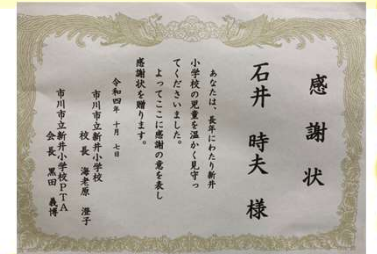 感謝状
石井 時夫 様
あなたは、長年にわたり新井
小学校の児童を温かく見守っ
てくださいました。
よってここに感謝の意を表し
感謝状を贈ります。
令和四年 十月 七日
市川市立新井小学校
校長 海老原 澄子
市川市立新井小学校PTA
会長 黒田 義博